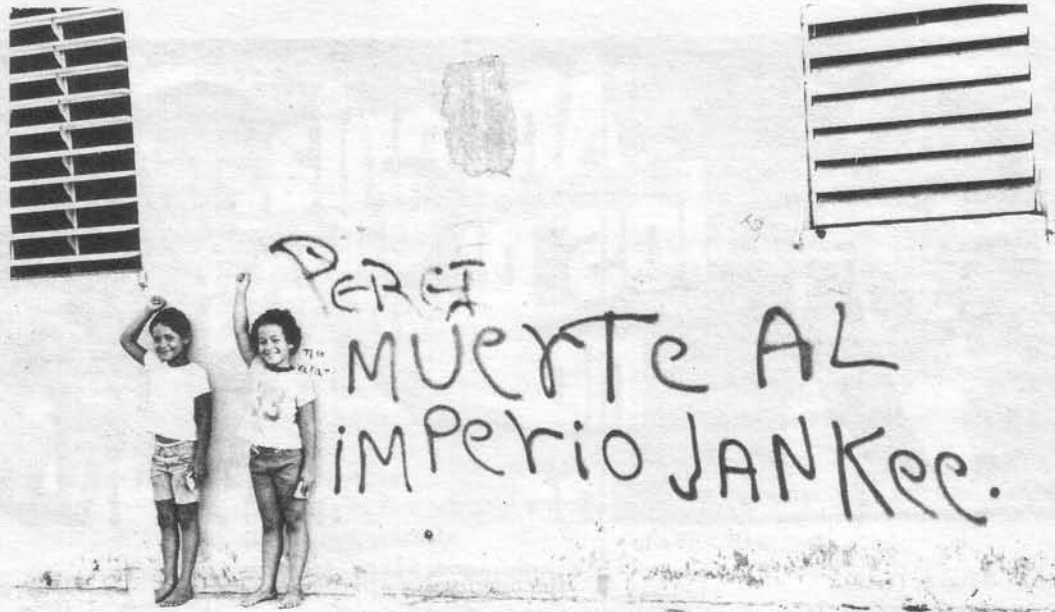 PERCI
MUERTE AL
IMPERIO JANKEE.